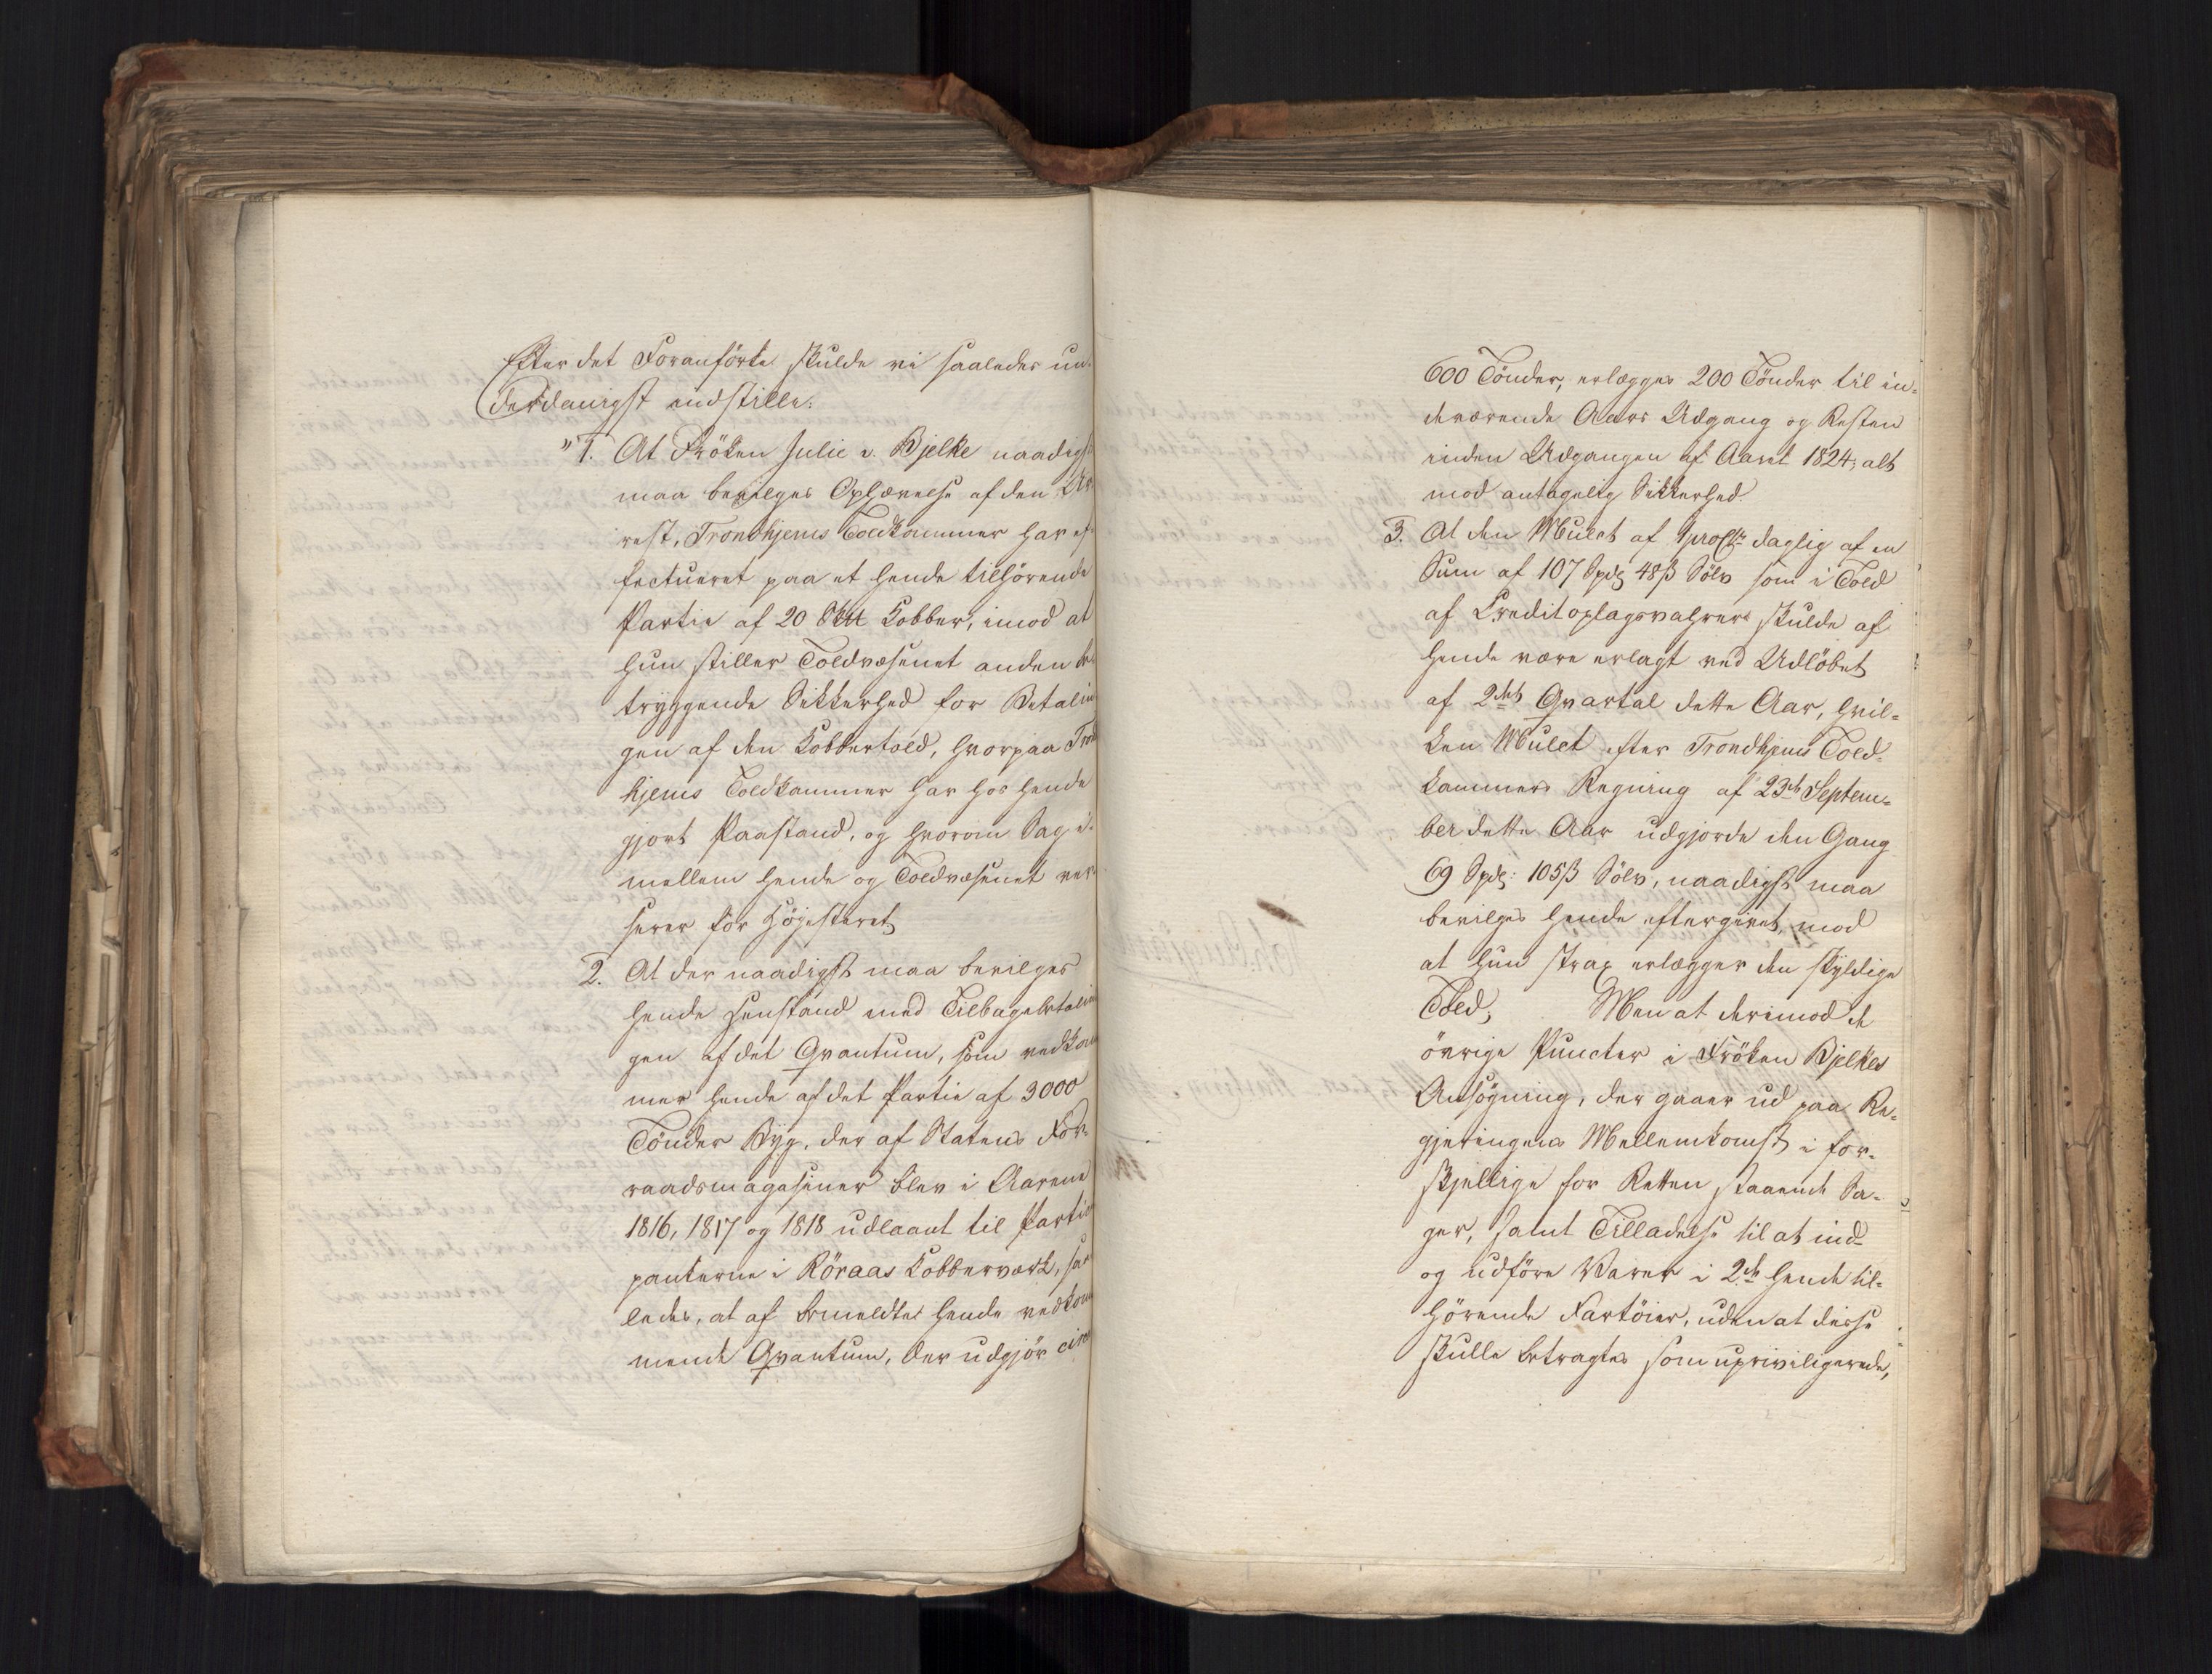 Efter det Foranførte skulde vi saaledes un-
derdanigst indstille:
"1. At Frøken Julie v. Bjelke naadigst
maa bevilges Ophævelse af den Ar-
rest, Trondhjems Toldkammer har ef-
fectueret paa et hende tilhørende
Partie af 20 Sk℔ Kobber, imod at
hun stiller Toldvæsenet anden be-
tryggende Sikkerhed for Betalin-
gen af den Kobbertold, hvorpaa Trond-
hjems Toldkammer har hos hende
gjort Paastand, og hvorom Sag i-
mellem hende og Toldvæsenet ver-
serer for Højesteret,
2. At der naadigst maa bevilges
hende Henstand med Tilbagebetalin-
gen af det Qvantum, som vedkom-
mer hende af det Partie af 3000
Tønder Byg, der af Statens For-
raadsmagasiner blev i Aarene
1816, 1817 og 1818 udlaant til Partici-
panterne i Røraas Kobberværk, saa-
ledes, at af bemeldte hende vedkom-
mende Qvantum, der udgjør circa
600 Tønder, erlægges 200 Tønder til in-
deværende Aars Udgang og Resten
inden Udgangen af Aaret 1824; alt
mod antagelig Sikkerhed.
3. At den Mulct af 1 pro Cto daglig af en
Sum af 107 Spd 48 ß Sølv som i Told
af Creditoplagsvahrer skulde af
hende være erlagt ved Udløbet
af 2det Qvartal dette Aar, hvil-
ken Mulct efter Trondhjems Told-
kammers Regning af 23de Septem-
ber dette Aar udgjorde den Gang
69 Spd: 105 ß Sølv, naadigst maa
bevilges hende eftergivet, mod
at hun strax erlægger den skyldige
Told; Men at derimod de
øvrige Puncter i Frøken Bjelkes
Ansøgning, der gaaer ud paa Re-
gjeringens Mellemkomst i for-
skjellige for Retten staaende Sa-
ger, samt Tilladelse til at ind-
og udføre Varer i 2de hende til-
hørende Fartøier, uden at disse
skulle betragtes som upriviligerede,